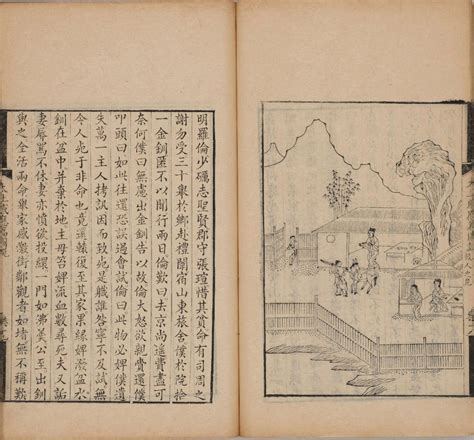 明羅倫少礪志聖賢郡守張瑄惜其貧命有司周之
謝勿受三十舉於鄉赴禮闈宿山東旅舍僕於院拾
一金釧匿不以聞行兩日倫歎曰去京尚遠費盡可
奈何僕曰無慮出金釧告以故倫大怒欲親齎還僕
叩頭曰如此往還恐誤會試倫曰此物必婢僕遺
失萬一主人拷訊因而致死是誰咎寧不及試無
令人死于非命也竟還轅復至其家果係婢潑盆水
釧在盆中并棄於地主母笞婢流血數尋死夫又詬
妻辱罵不休妻亦憤欲投繯一門如沸羹公至出釧
與之全活兩命舉家感激街鄰觀者如堵無不稱歎